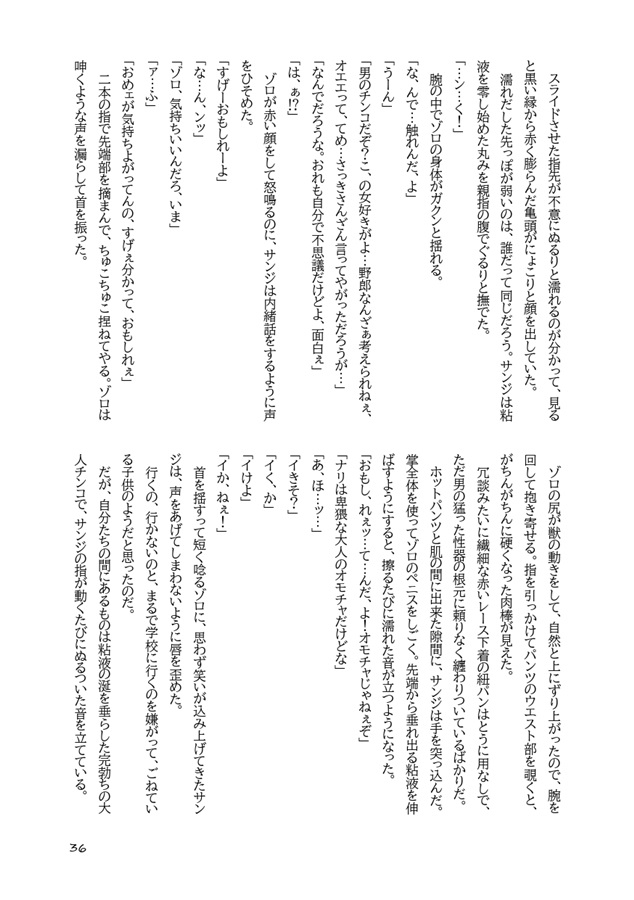 スライドさせた指先が不意にぬるりと濡れるのが分かって、見る
と黒い縁から赤く膨らんだ亀頭がにょこりと顔を出していた。
　濡れだした先っぽが弱いのは、誰だって同じだろう。サンジは粘
液を零し始めた丸みを親指の腹でぐるりと撫でた。
「…ン…く！」
　腕の中でゾロの身体がガクンと揺れる。
「な、んで…触れんだ、よ」
「うーん」
「男のチンコだぞ？こ、の女好きがよ…野郎なんざぁ考えられねぇ、
オエエって、てめ…さっきさんざん言ってやがっただろうが…」
「なんでだろうな。おれも自分で不思議だけどよ、面白ぇ」
「は、ぁ!?」
　ゾロが赤い顔をして怒鳴るのに、サンジは内緒話をするように声
をひそめた。
「すげーおもしれーよ」
「な…ん、ンッ」
「ゾロ、気持ちいいんだろ、いま」
「ァ…ふ」
「おめェが気持ちよがってんの、すげぇ分かって、おもしれぇ」
　二本の指で先端部を摘まんで、ちゅこちゅこ捏ねてやる。ゾロは
呻くような声を漏らして首を振った。
　ゾロの尻が獣の動きをして、自然と上にずり上がったので、腕を
回して抱き寄せる。指を引っかけてパンツのウエスト部を覗くと、
がちんがちんに硬くなった肉棒が見えた。
　冗談みたいに繊細な赤いレース下着の紐パンはとうに用なしで、
ただ男の猛った性器の根元に頼りなく纏わりついているばかりだ。
　ホットパンツと肌の間に出来た隙間に、サンジは手を突っ込んだ。
掌全体を使ってゾロのペニスをしごく。先端から垂れ出る粘液を伸
ばすようにすると、擦るたびに濡れた音が立つようになった。
「おもし、れぇッ…て…んだ、よ！オモチャじゃねぇぞ」
「ナリは卑猥な大人のオモチャだけどな」
「あ、ほ…ッ…」
「イきそ？」
「イく、か」
「イけよ」
「イか、ねぇ！」
　首を揺すって短く唸るゾロに、思わず笑いが込み上げてきたサン
ジは、声をあげてしまわないように唇を歪めた。
　行くの、行かないのと、まるで学校に行くのを嫌がって、ごねてい
る子供のようだと思ったのだ。
　だが、自分たちの間にあるものは粘液の涎を垂らした完勃ちの大
人チンコで、サンジの指が動くたびにぬるついた音を立てている。
36